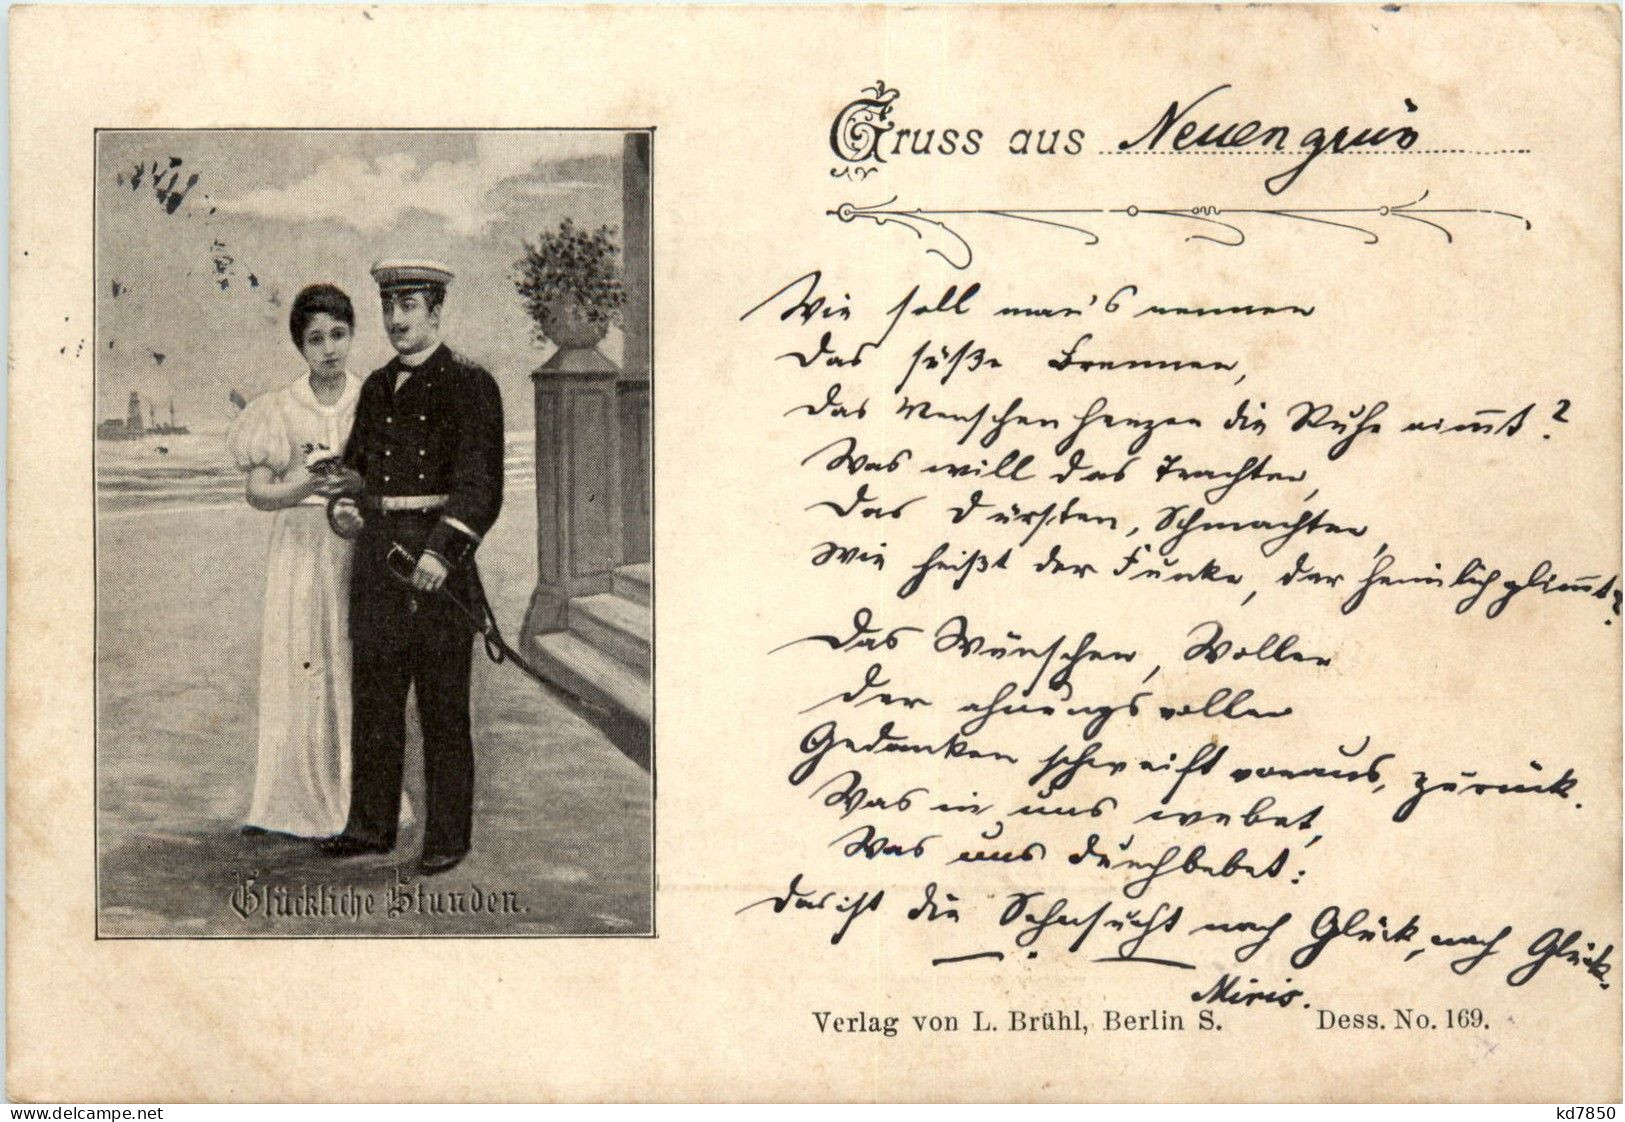 Gruss aus Neuengrün
Wie soll man's nennen
Das süße Brennen,
Das Menschenherzen die Ruhe nimmt?
Was will das Trachten,
Das Dürsten, Schmachten,
Wie heißt der Funke, der heimlich glimmt?
Das Wünschen, Wollen
Der ahnungsvollen
Gedanken schweift voraus, zurück.
Was in uns webet,
Was uns durchbebet:
Das ist die Sehnsucht nach Glück, nach Glück.
Miris.
Glückliche Stunden.
Verlag von L. Brühl, Berlin S. Dess. No. 169.
www.delcampe.net
kd7850